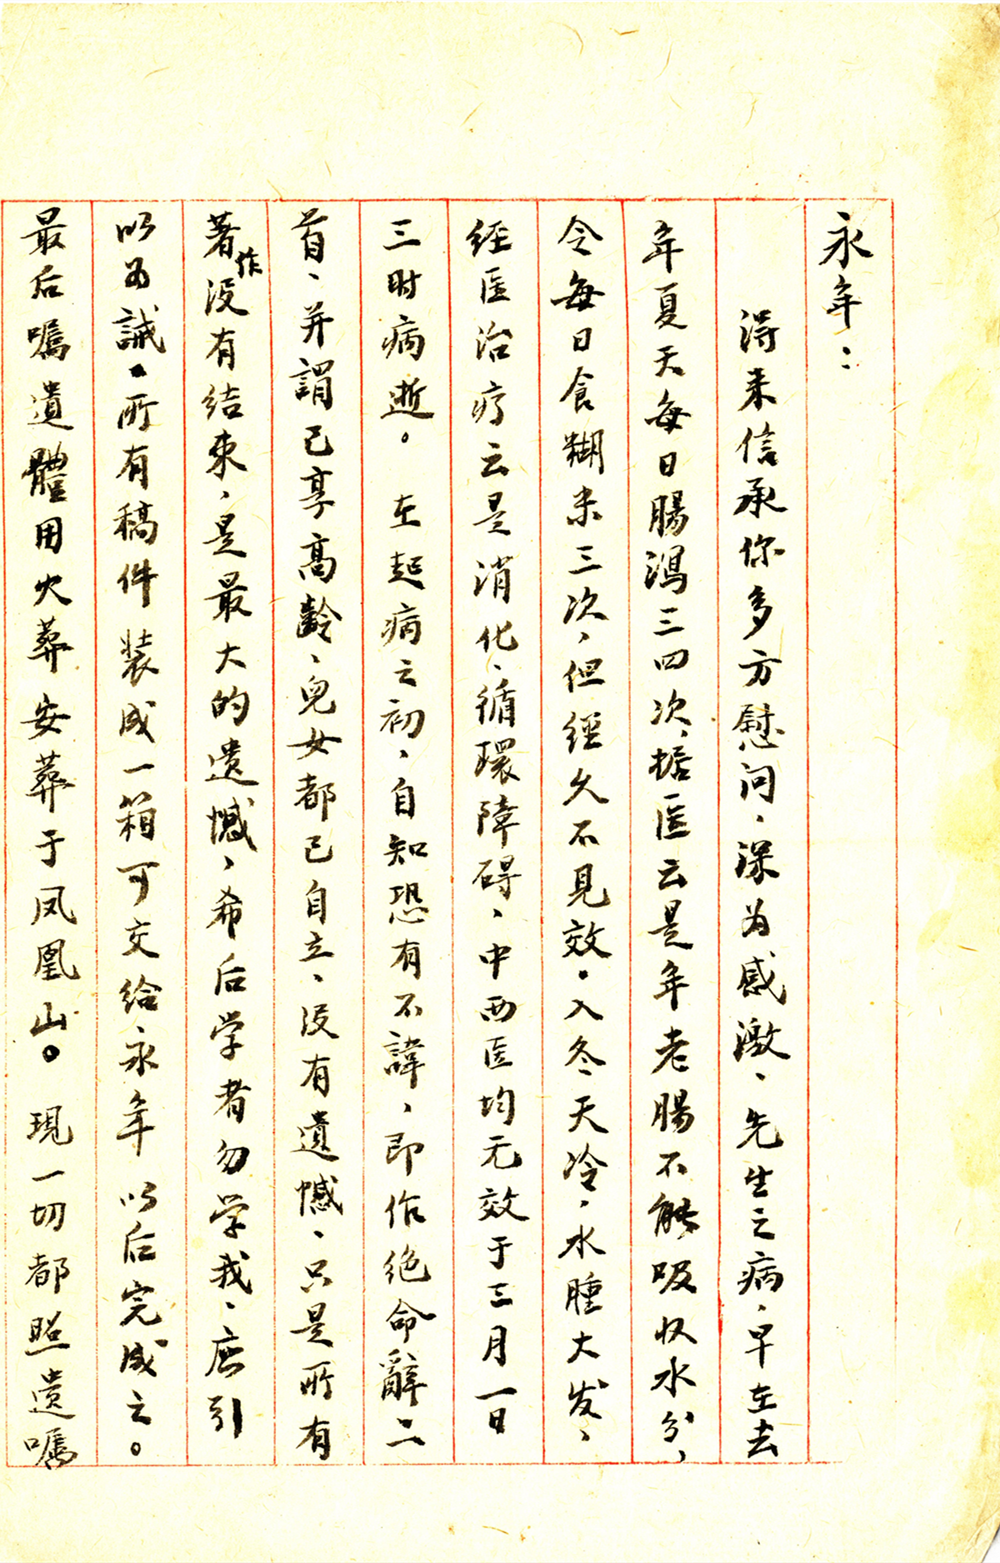 永年：
淂来信承你多方慰问、深为感激、先生之病、早在去
年夏天每日腸瀉三四次、据医云是年老腸不能吸收水分、
令每日食糊米三次、但經久不見效。入冬天冷、水腫大发、
经医治疗云是消化、循環障碍、中西医均无效于三月一日
三时病逝。在起病之初、自知恐有不諱、即作绝命辭二
首、并謂已享高齡、兒女都已自立、没有遺憾、只是所有
著作没有结束、是最大的遗憾、希后学者勿学我、庶引
以为誡。所有稿件装成一箱可交给永年以后完成之。
最后嘱遺體用火葬安葬于凤凰山。現一切都照遗嘱